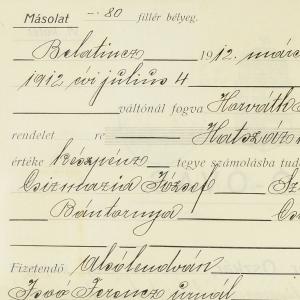 Másolat -·80 fillér bélyeg.
Belatincz 1912. márc
1912 évi július 4
váltónál fogva Horváth
rendelet re Hatszáz
értéke készpénz tegye számolásba tud
Csizmazia József Sz
Bántornya Cs
Fizetendő Alsólendván
Ivó Ferencz úrnál